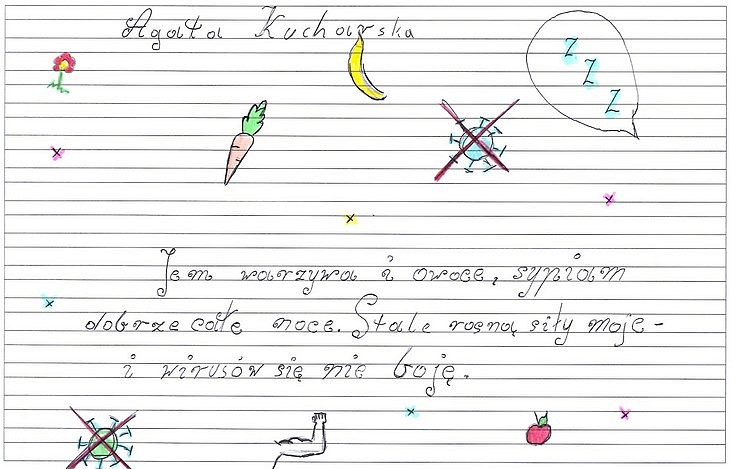 Agata Kucharska
Z
Z
Z
Jem warzywa i owoce, sypiam
dobrze całe noce. Stale rosną siły moje -
i wirusów się nie boję.